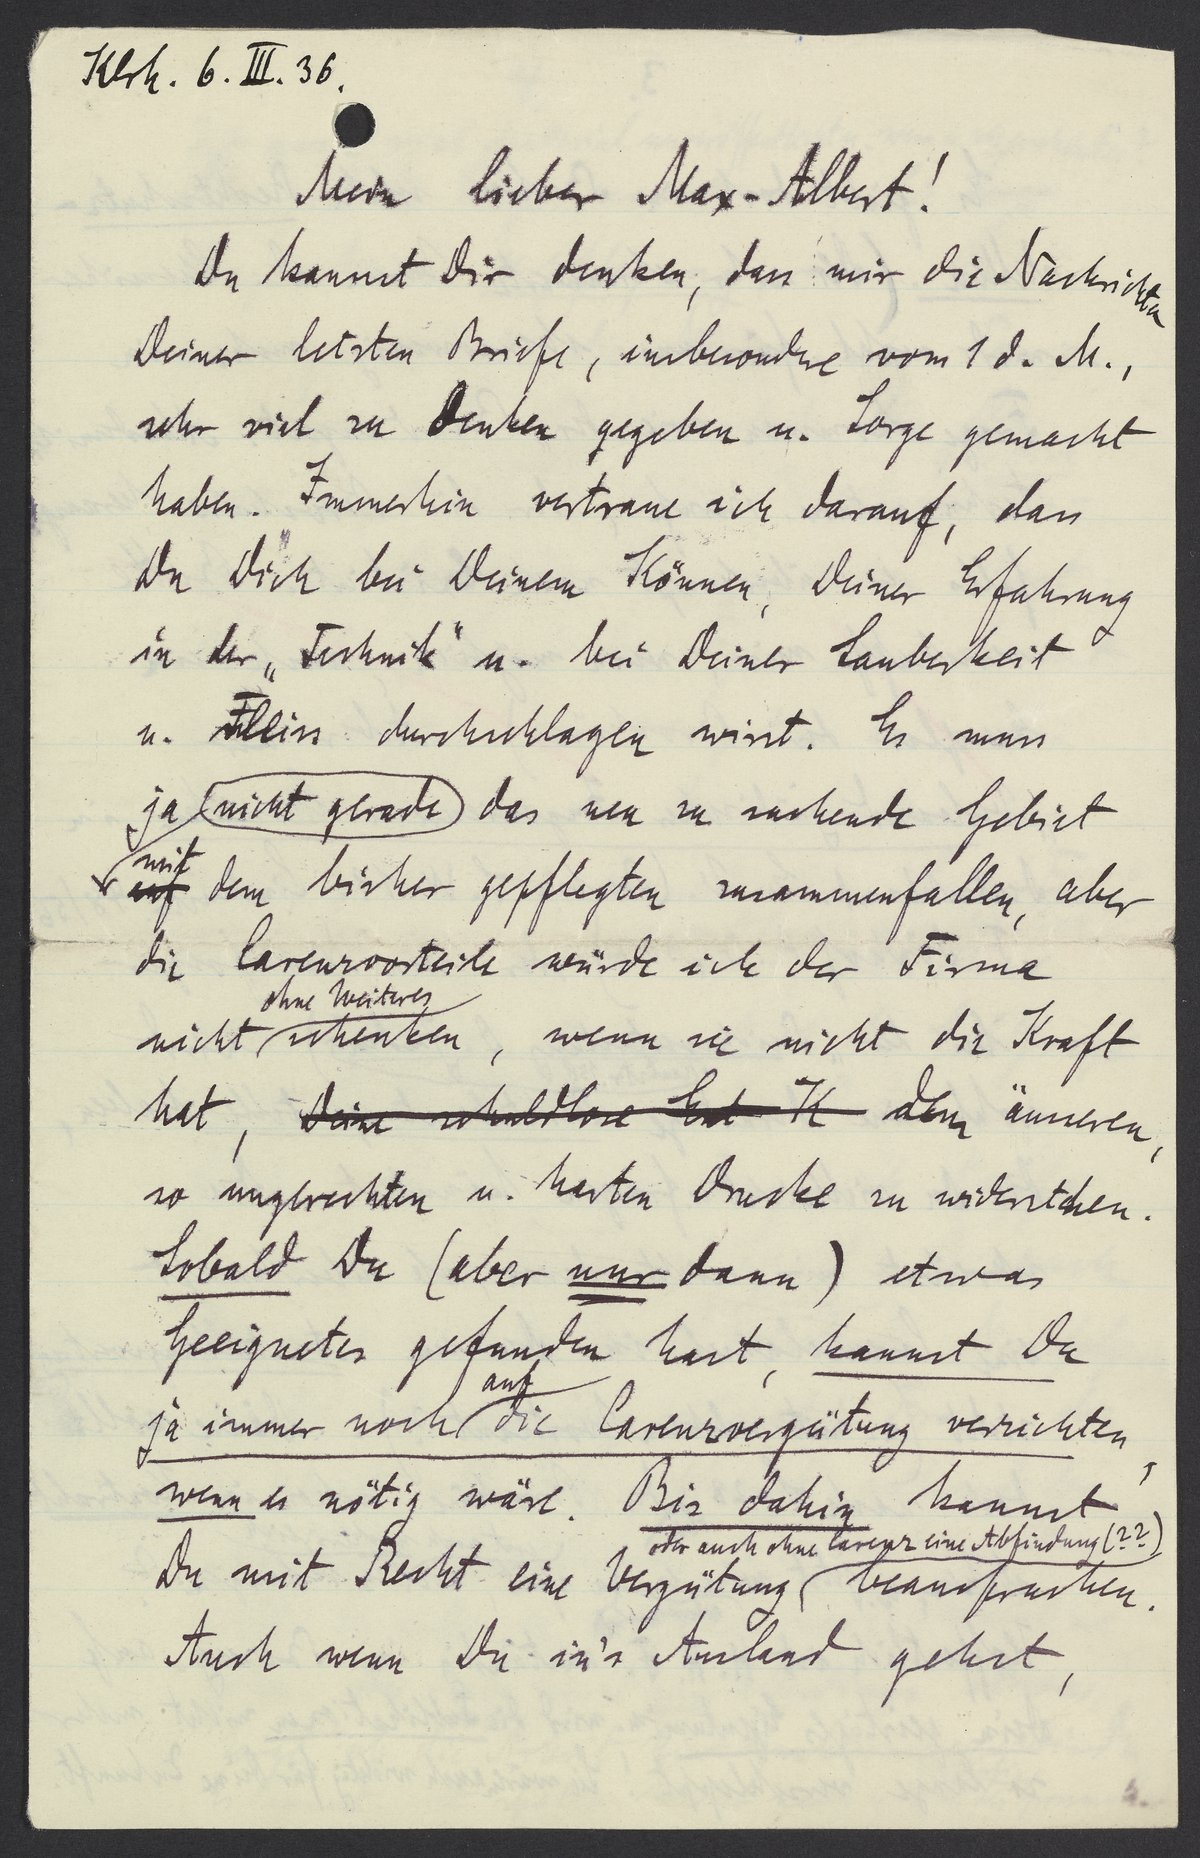 Klrh. 6. III. 36.
Mein lieber Max-Albert!
Du kannst Dir denken, dass mir die Nachrichten
Deiner letzten Briefe, insbesondre vom 1 d. M.,
sehr viel zu Denken gegeben u. Sorge gemacht
haben. Immerhin vertraue ich darauf, dass
Du Dich bei Deinem Können, Deiner Erfahrung
in der „Technik“ u. bei Deiner Sauberkeit
u. Fleiss durchschlagen wirst. Es muss
ja nicht gerade das neu zu suchende Gebiet
mit
auf dem bisher gepflegten zusammenfallen, aber
die Carenzvorteile würde ich der Firma
ohne Weiteres
nicht schenken, wenn sie nicht die Kraft
hat, Deine schuldlose Ent K dem äusseren,
so ungerechten u. harten Drucke zu widerstehen.
Sobald Du (aber nur dann) etwas
Geeignetes gefunden hast, kannst Du
auf
ja immer noch die Carenzvergütung verzichten,
wenn es nötig wäre. Bis dahin kannst
oder auch ohne Carenz eine Abfindung (??)
Du mit Recht eine Vergütung beanspruchen.
Auch wenn Du in's Ausland gehst,